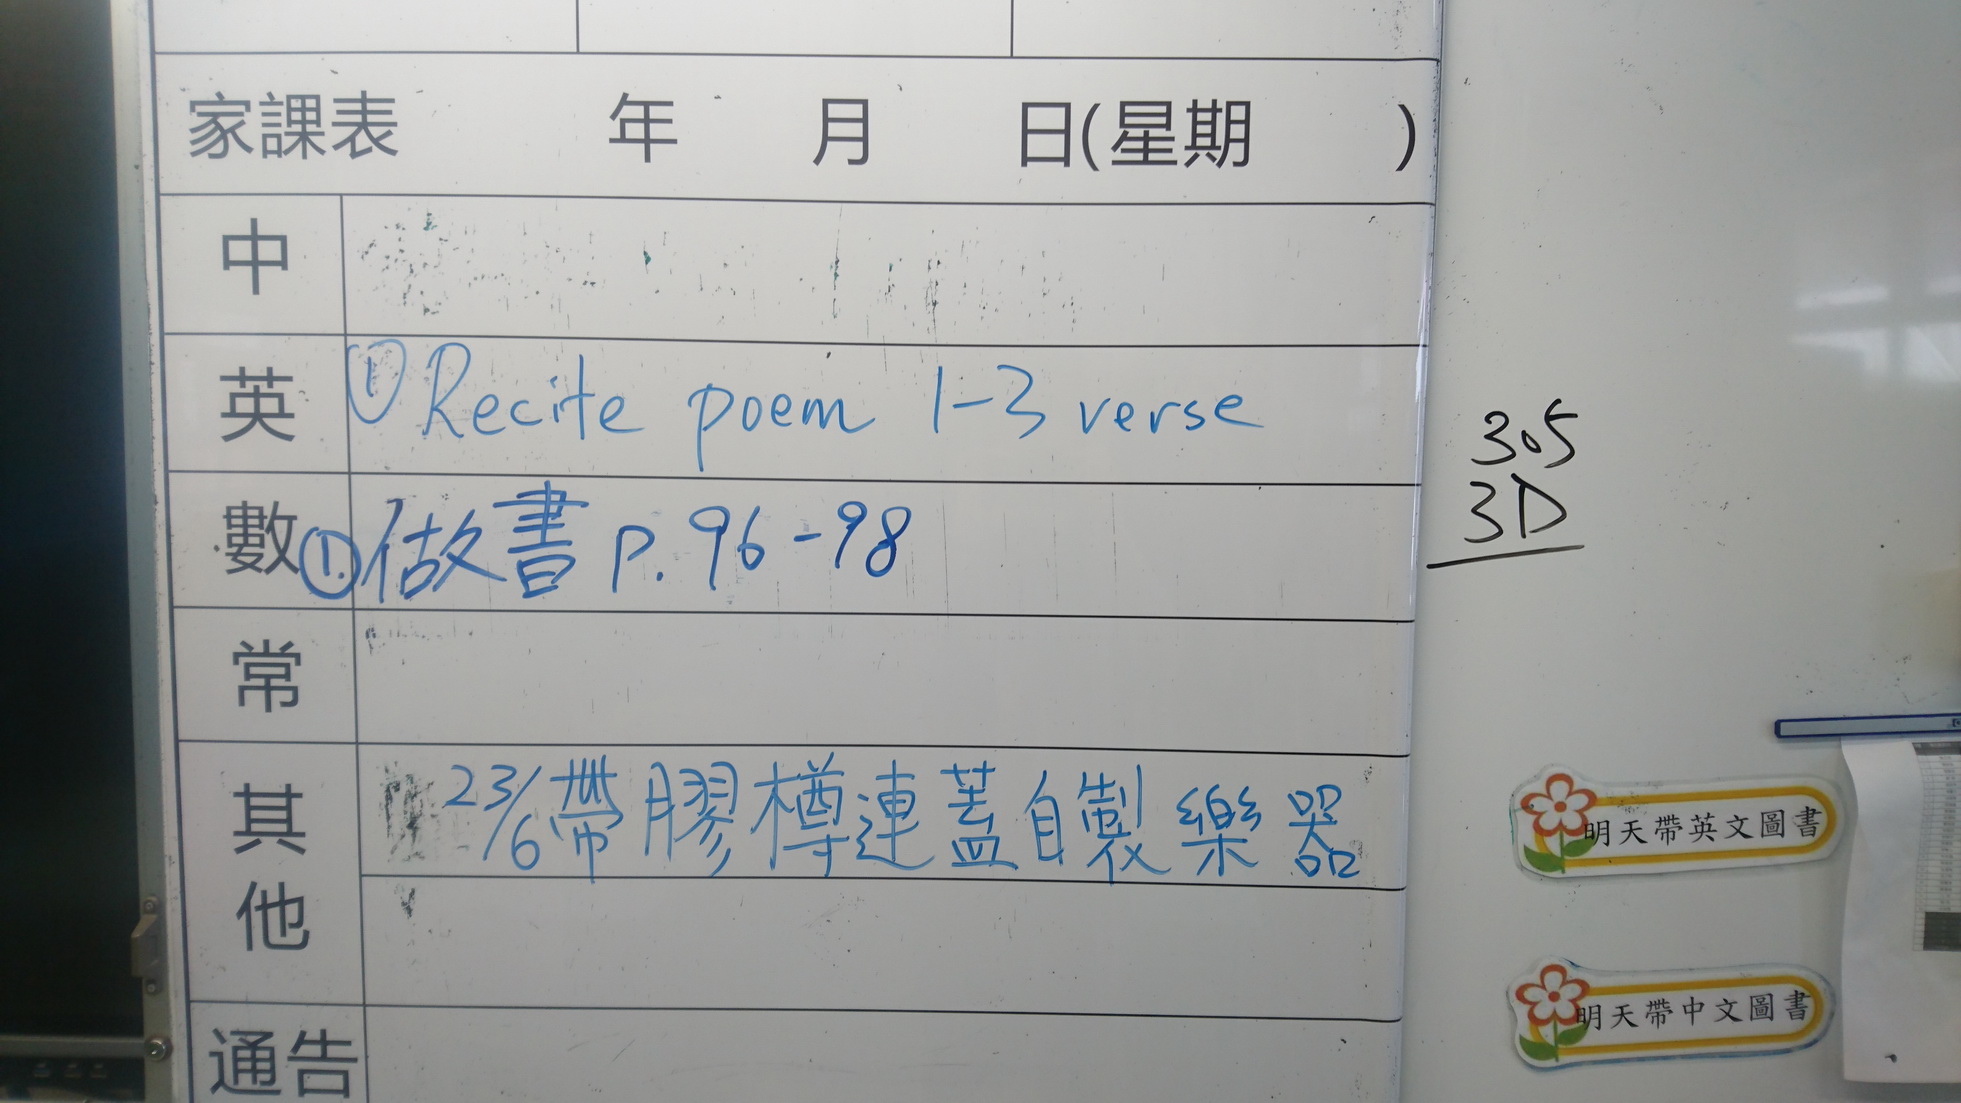 家課表 年 月 日(星期 )
中
英 ① Recite poem 1-3 verse
數 ① 做書 p. 96-98
常
其他 23/6 帶膠樽連蓋自製樂器
通告
305
3D
明天帶英文圖書
明天帶中文圖書